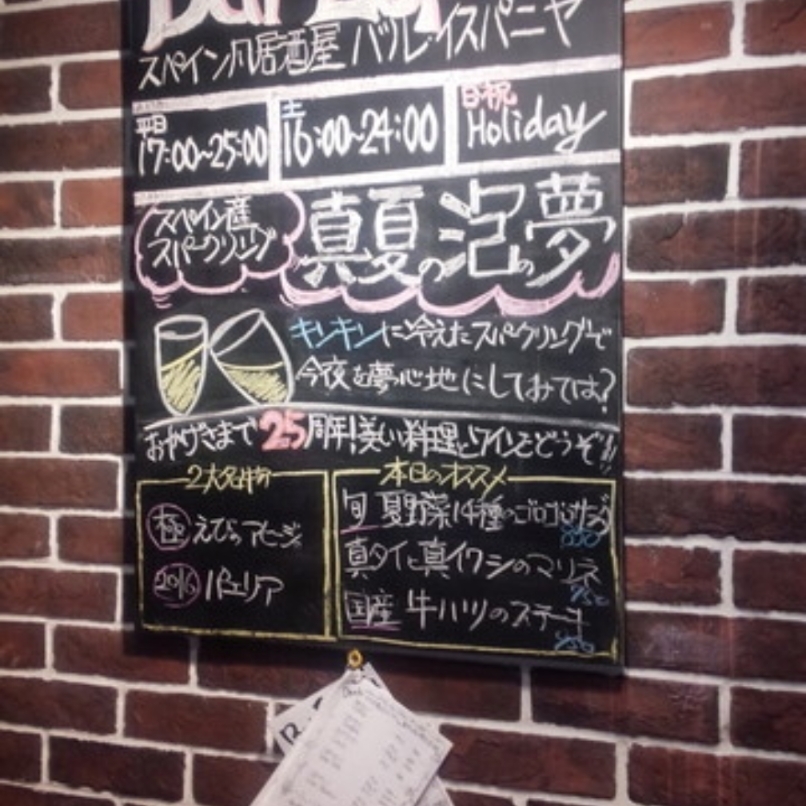 スペイン風居酒屋 バル・イスパニヤ
平日
17:00~25:00
土
16:00~24:00
日・祝
Holiday
スペイン産
スパークリング
真夏の泡の夢
キンキンに冷えたスパークリングで
今夜を夢心地にしてみては?
おかげさまで25周年!美味い料理とワインをどうぞ!!
2大名物
極 えびのアヒージョ
2016 パエリア
本日のオススメ
旬 夏野菜14種のゴロゴロサラダ
真タイと真イワシのマリネ
国産 牛ハツのステーキ